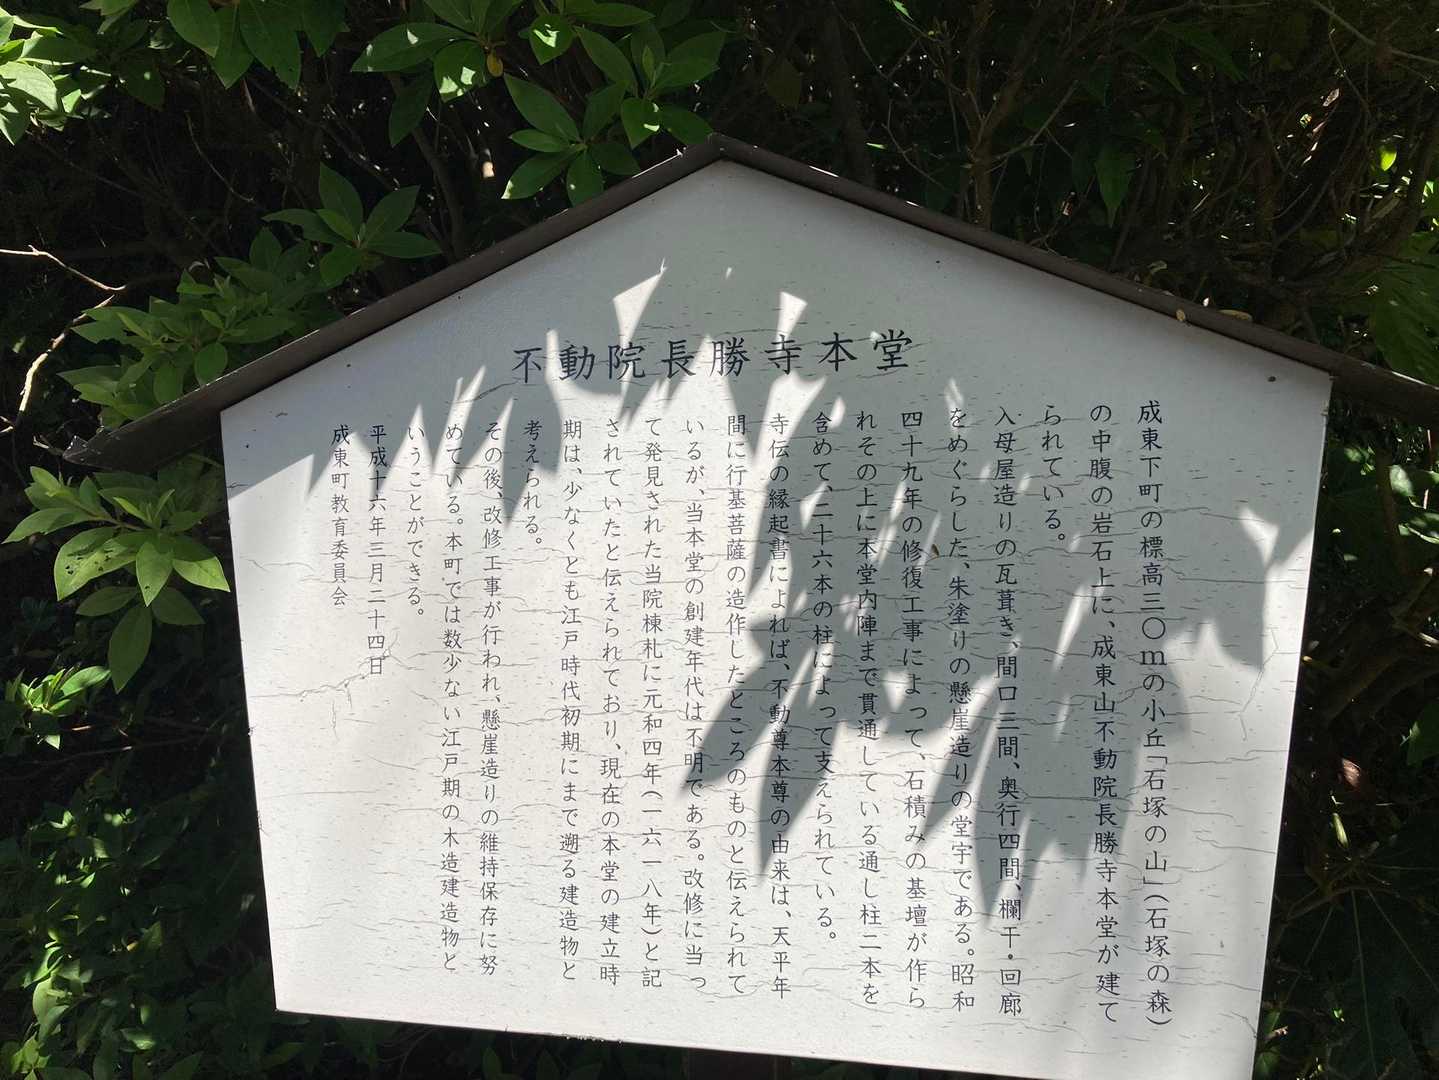 不動院長勝寺本堂
成東下町の標高三〇mの小丘「石塚の山」(石塚の森)
の中腹の岩石上に、成東山不動院長勝寺本堂が建て
られている。
入母屋造りの瓦葺き、間口三間、奥行四間、欄干・回廊
をめぐらした、朱塗りの懸崖造りの堂宇である。昭和
四十九年の修復工事によって、石積みの基壇が作ら
れその上に本堂内陣まで貫通している通し柱二本を
含めて、二十六本の柱によって支えられている。
寺伝の縁起書によれば、不動尊本尊の由来は、天平年
間に行基菩薩の造作したところのものと伝えられて
いるが、当本堂の創建年代は不明である。改修に当っ
て発見された当院棟札に元和四年(一六一八年)と記
されていたと伝えられており、現在の本堂の建立時
期は、少なくとも江戸時代初期にまで遡る建造物と
考えられる。
その後、改修工事が行われ、懸崖造りの維持保存に努
めている。本町では数少ない江戸期の木造建造物と
いうことができる。
平成十六年三月二十四日
成東町教育委員会